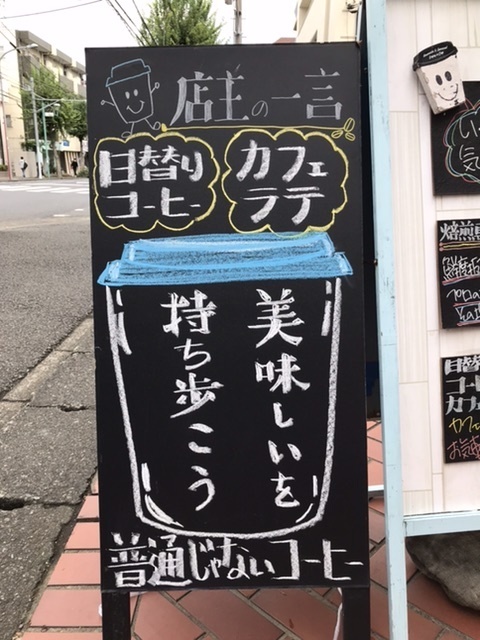 店主の一言
日替り
コーヒー
カフェ
ラテ
美味しいを
持ち歩こう
普通じゃないコーヒー
日替
コー
カフ